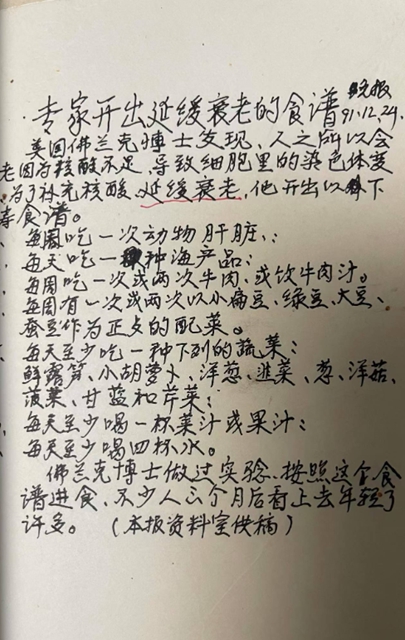 晚报
专家开出延缓衰老的食谱 91.12.24.
美国佛兰克博士发现,人之所以会
老因为核酸不足,导致细胞里的染色体变
为了补充核酸,延缓衰老,他开出以下
寿食谱。
每周吃一次动物肝脏;
每天吃一种海产品;
每周吃一次或两次牛肉,或饮牛肉汁。
每周有一次或两次以小扁豆、绿豆、大豆、
蚕豆作为正点的配菜。
每天至少吃一种下列的蔬菜:
鲜露笋、小胡萝卜、洋葱、韭菜、葱、洋菇、
菠菜、甘蓝和芹菜;
每天至少喝一杯菜汁或果汁;
每天至少喝四杯水。
佛兰克博士做过实验,按照这个食
谱进食,不少人三个月后看上去年轻了
许多。(本报资料室供稿)